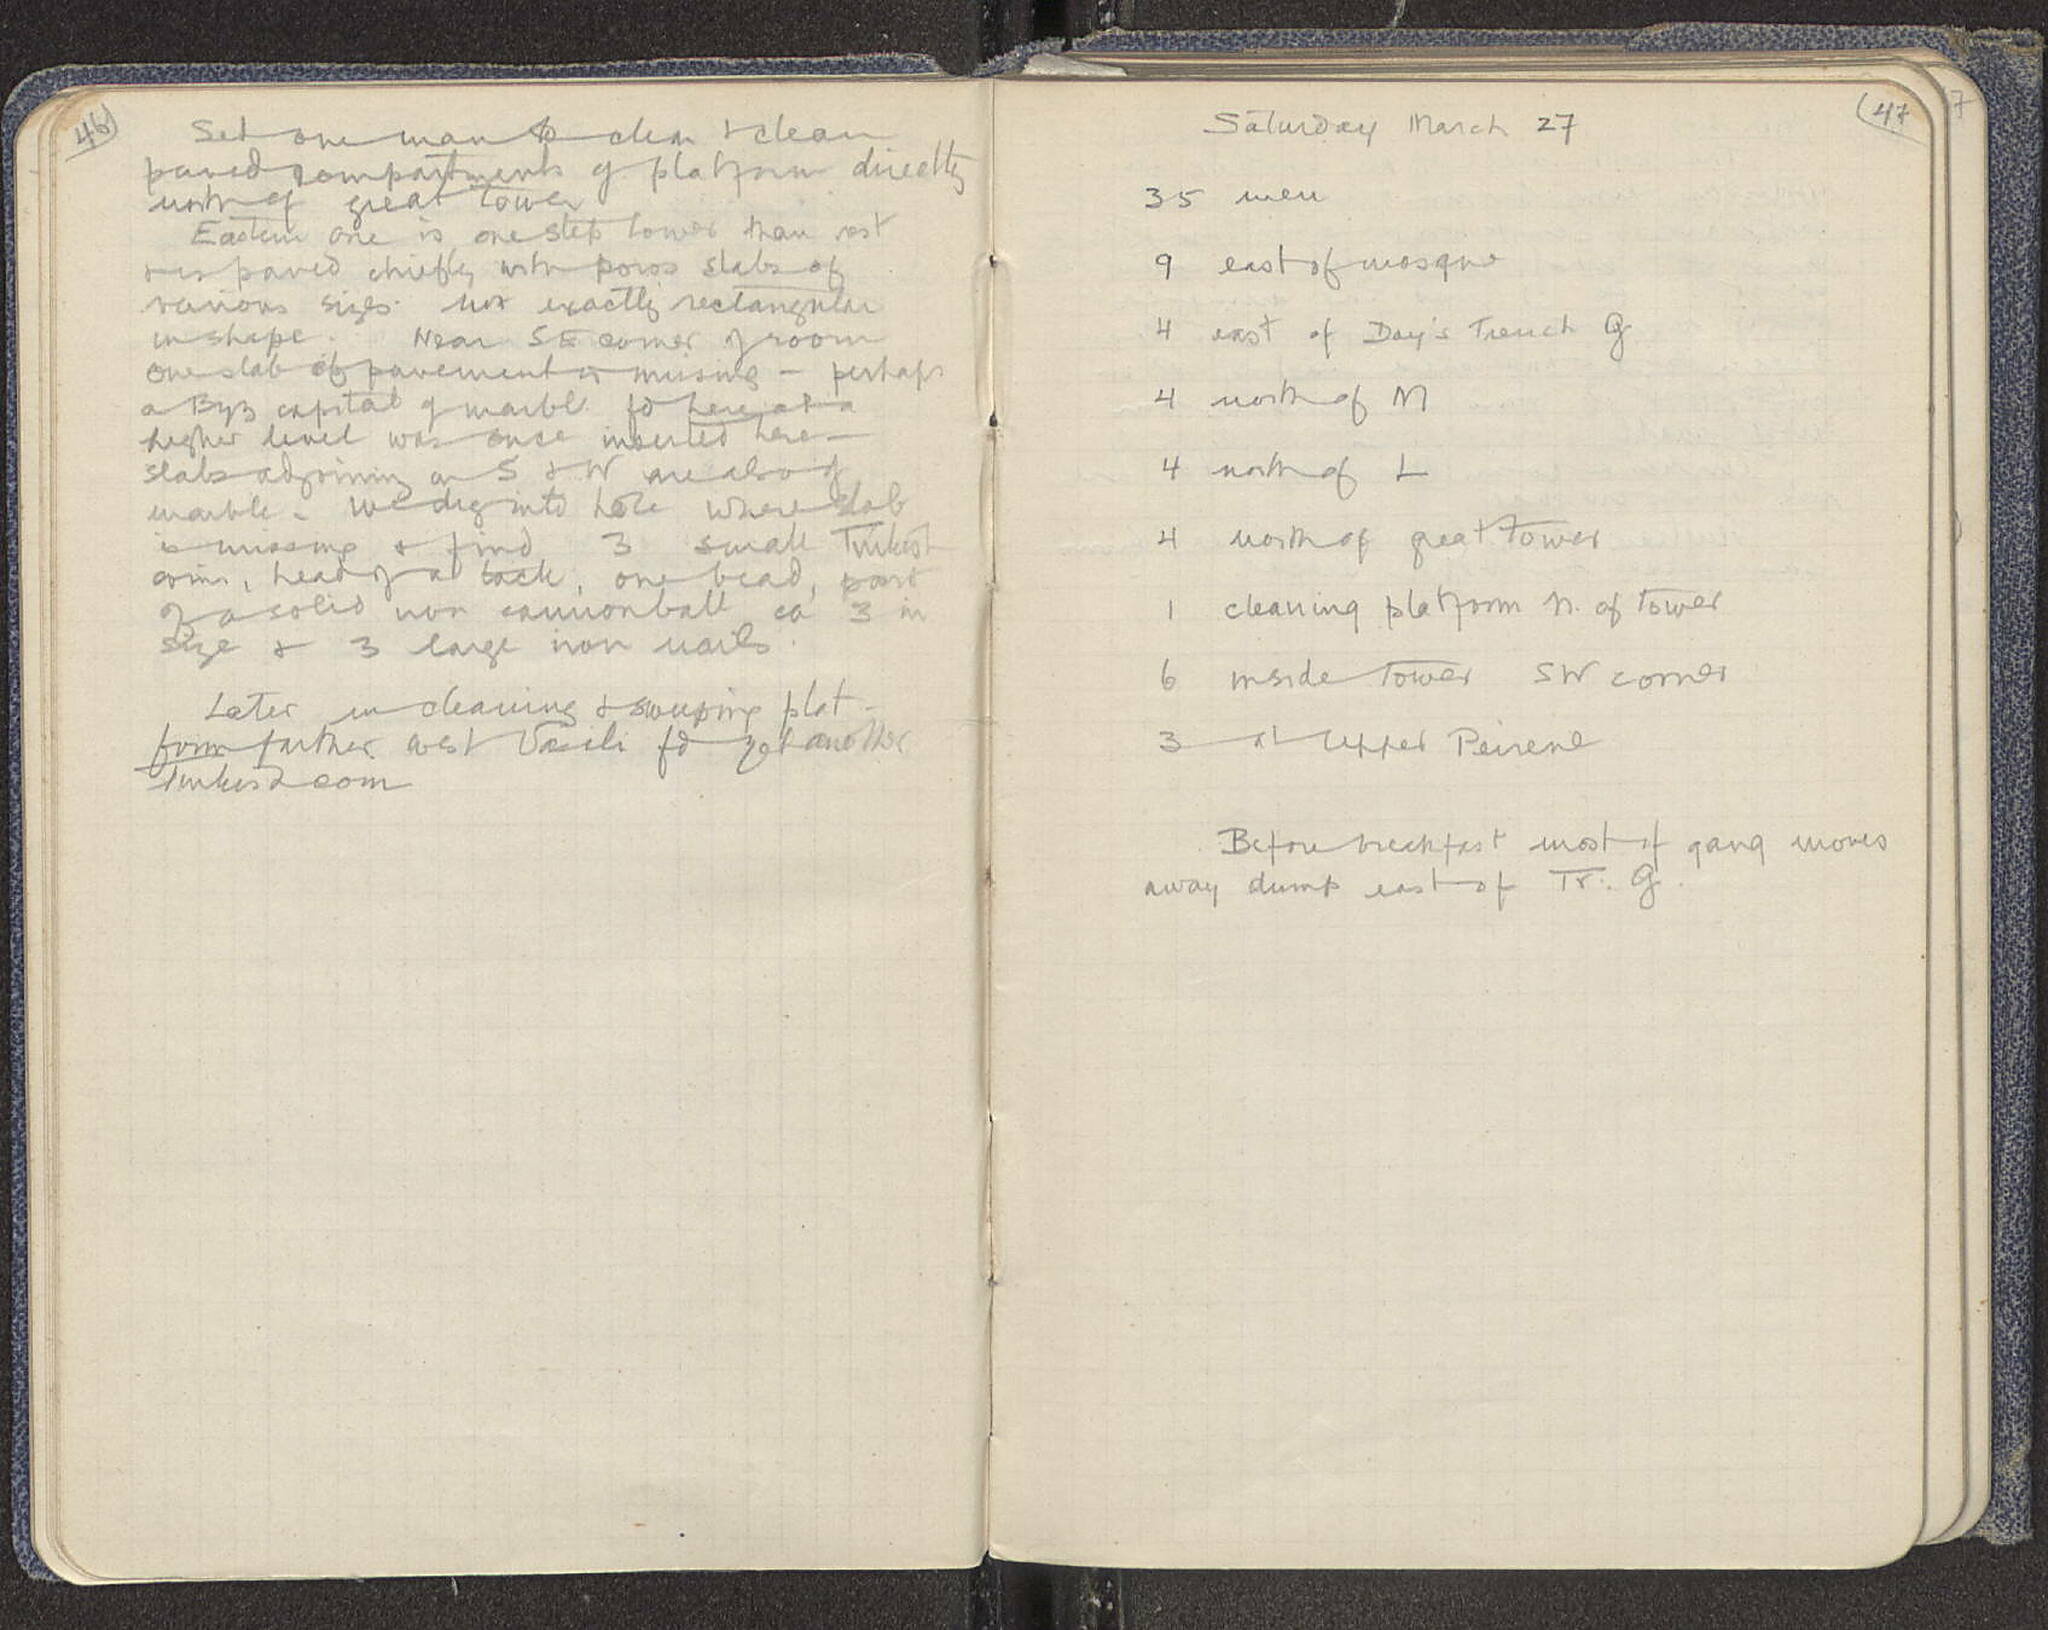 46
Set one man to clear & clean
paved compartments of platform directly
north of great tower
Eastern one is one step lower than rest
& is paved chiefly with poros slabs of
various sizes not exactly rectangular
in shape. Near SE corner of room
one slab of pavement is missing – perhaps
a Byz capital of marble fd here at a
higher level was once inserted here –
slabs adjoining on S & W are also of
marble – We dig into hole where slab
is missing & find 3 small Turkish
coins, head of a tack, one bead, part
of a solid iron cannonball ca 3 in
size & 3 large iron nails.
Later in cleaning & sweeping plat-
form farther west Vasili fd yet another
Turkish coin
47
Saturday March 27
35 men
9 east of mosque
4 east of Day's Trench G
4 north of M
4 north of L
4 north of great tower
1 cleaning platform N. of tower
6 inside tower SW corner
3 at Upper Peirene
Before breakfast most of gang moves
away dump east of Tr. G.